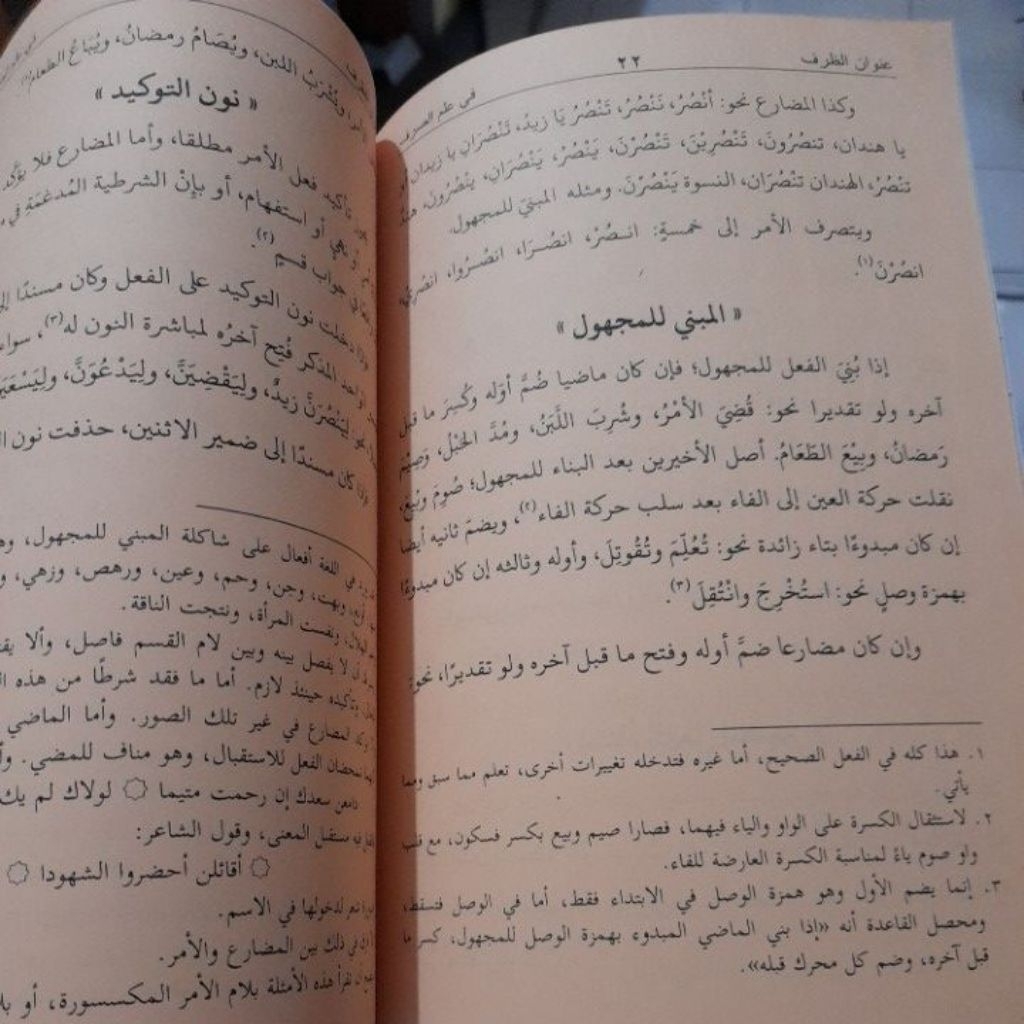 عنوان الظرف
٢٢
في علم الصرف
وكذا المضارع نحو: أَنْصُرُ، نَنْصُرُ، تَنْصُرُ يَا زيدُ، تَنْصُرَانِ يا زيدان أو
يا هندان، تنصُرُونَ، تَنْصُرِيْنَ، تَنْصُرْنَ، يَنْصُرُ، يَنْصُرَانِ، يَنْصُرُونَ، هندُ
تَنْصُرُ، الهندان تَنْصُرَان، النسوة يَنْصُرْنَ. ومثله المبنيّ للمجهول.
ويتصرف الأمر إلى خمسةٍ: انـصُرْ، انصُـرَا، انصُـرُوا، انصُرِي،
انصُرْنَ(١).
« المبني للمجهول »
إذا بُنِيَ الفعل للمجهول؛ فإن كان ماضيا ضُمَّ أوّله وكُسِرَ ما قبل
آخره ولو تقديرا نحو: قُضِيَ الأمْرُ، وشُرِبَ اللَّبَنُ، ومُدَّ الحَبْلُ، وَصِيْمَ
رَمضانُ، وبِيْعَ الطّعَامُ. أصل الأخيرين بعد البناء للمجهول؛ صُوِمَ وبُيِعَ،
نقلت حركة العين إلى الفاء بعد سلب حركة الفاء(٢)، ويضمّ ثانيه أيضا
إن كان مبدوءًا بتاء زائدة نحو: تُعُلِّمَ وتُقُوتِلَ، وأوله وثالثه إن كان مبدوءًا
بهمزة وصلٍ نحو: استُخْرِجَ وانْتُقِلَ(٣).
وإن كان مضارعا ضمَّ أوله وفتح ما قبل آخره ولو تقديرًا، نحو:
١. هذا كله في الفعل الصحيح، أما غيره فتدخله تغييرات أخرى، تعلم مما سبق ومما
يأتي.
٢. لاستثقال الكسرة على الواو والياء فيهما، فصارا صيم وبيع بكسر فسكون، مع قلب
واو صوم ياءً لمناسبة الكسرة العارضة للفاء.
٣. إنما يضم الأول وهو همزة الوصل في الابتداء فقط، أما في الوصل فتسقط،
ومحصل القاعدة أنه «إذا بني الماضي المبدوء بهمزة الوصل للمجهول، كسر ما
قبل آخره، وضم كل محرك قبله».
ويُشْرَبُ اللبن، ويُصَامُ رمضانُ، ويُبَاعُ الطعام
« نون التوكيد »
تأكيد فعل الأمر مطلقا، وأما المضارع فلا يؤكد
أو نهي أو استفهام، أو بإِنْ الشرطية المُدغمَةِ في
في جواب قسمٍ(٢).
دخلت نون التوكيد على الفعل وكان مسندًا إلى
المذكر فُتِح آخرُه لمباشرة النون له(٣)، سواء
لِيَنْصُرَنَّ زيدٌ، ولِيَقْضِيَنَّ، ولِيَدْعُوَنَّ، ولِيَسْعَيَنَّ
كان مسندًا إلى ضمير الاثنين، حذفت نون
في اللغة أفعال على شاكلة المبني للمجهول،
وبهت، وجن، وحم، وعين، ورهص، وزهي،
الهلال، ونفست المرأة، ونتجت الناقة.
لا يفصل بينه وبين لام القسم فاصل، وألا
وتأكيده حينئذ لازم. أما ما فقد شرطًا من هذه
المضارع في غير تلك الصور. وأما الماضي
الفعل للاستقبال، وهو مناف للمضي.
دامن سعدك إن رحمت متيما ۞ لولاك لم يك
مستقبل المعنى، وقول الشاعر:
۞ أقائلن أحضروا الشهودا ۞
لدخولها في الاسم.
في ذلك بين المضارع والأمر.
تقرأ هذه الأمثلة بلام الأمر المكسسورة، أو